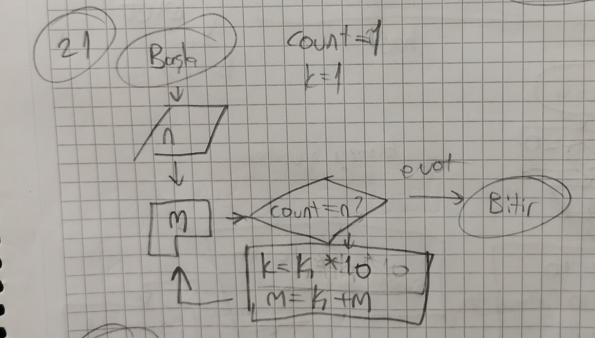 21
Başla
count=1
k=1
n
m
count=n?
evet
Bitir
k=k*10
m=k+m